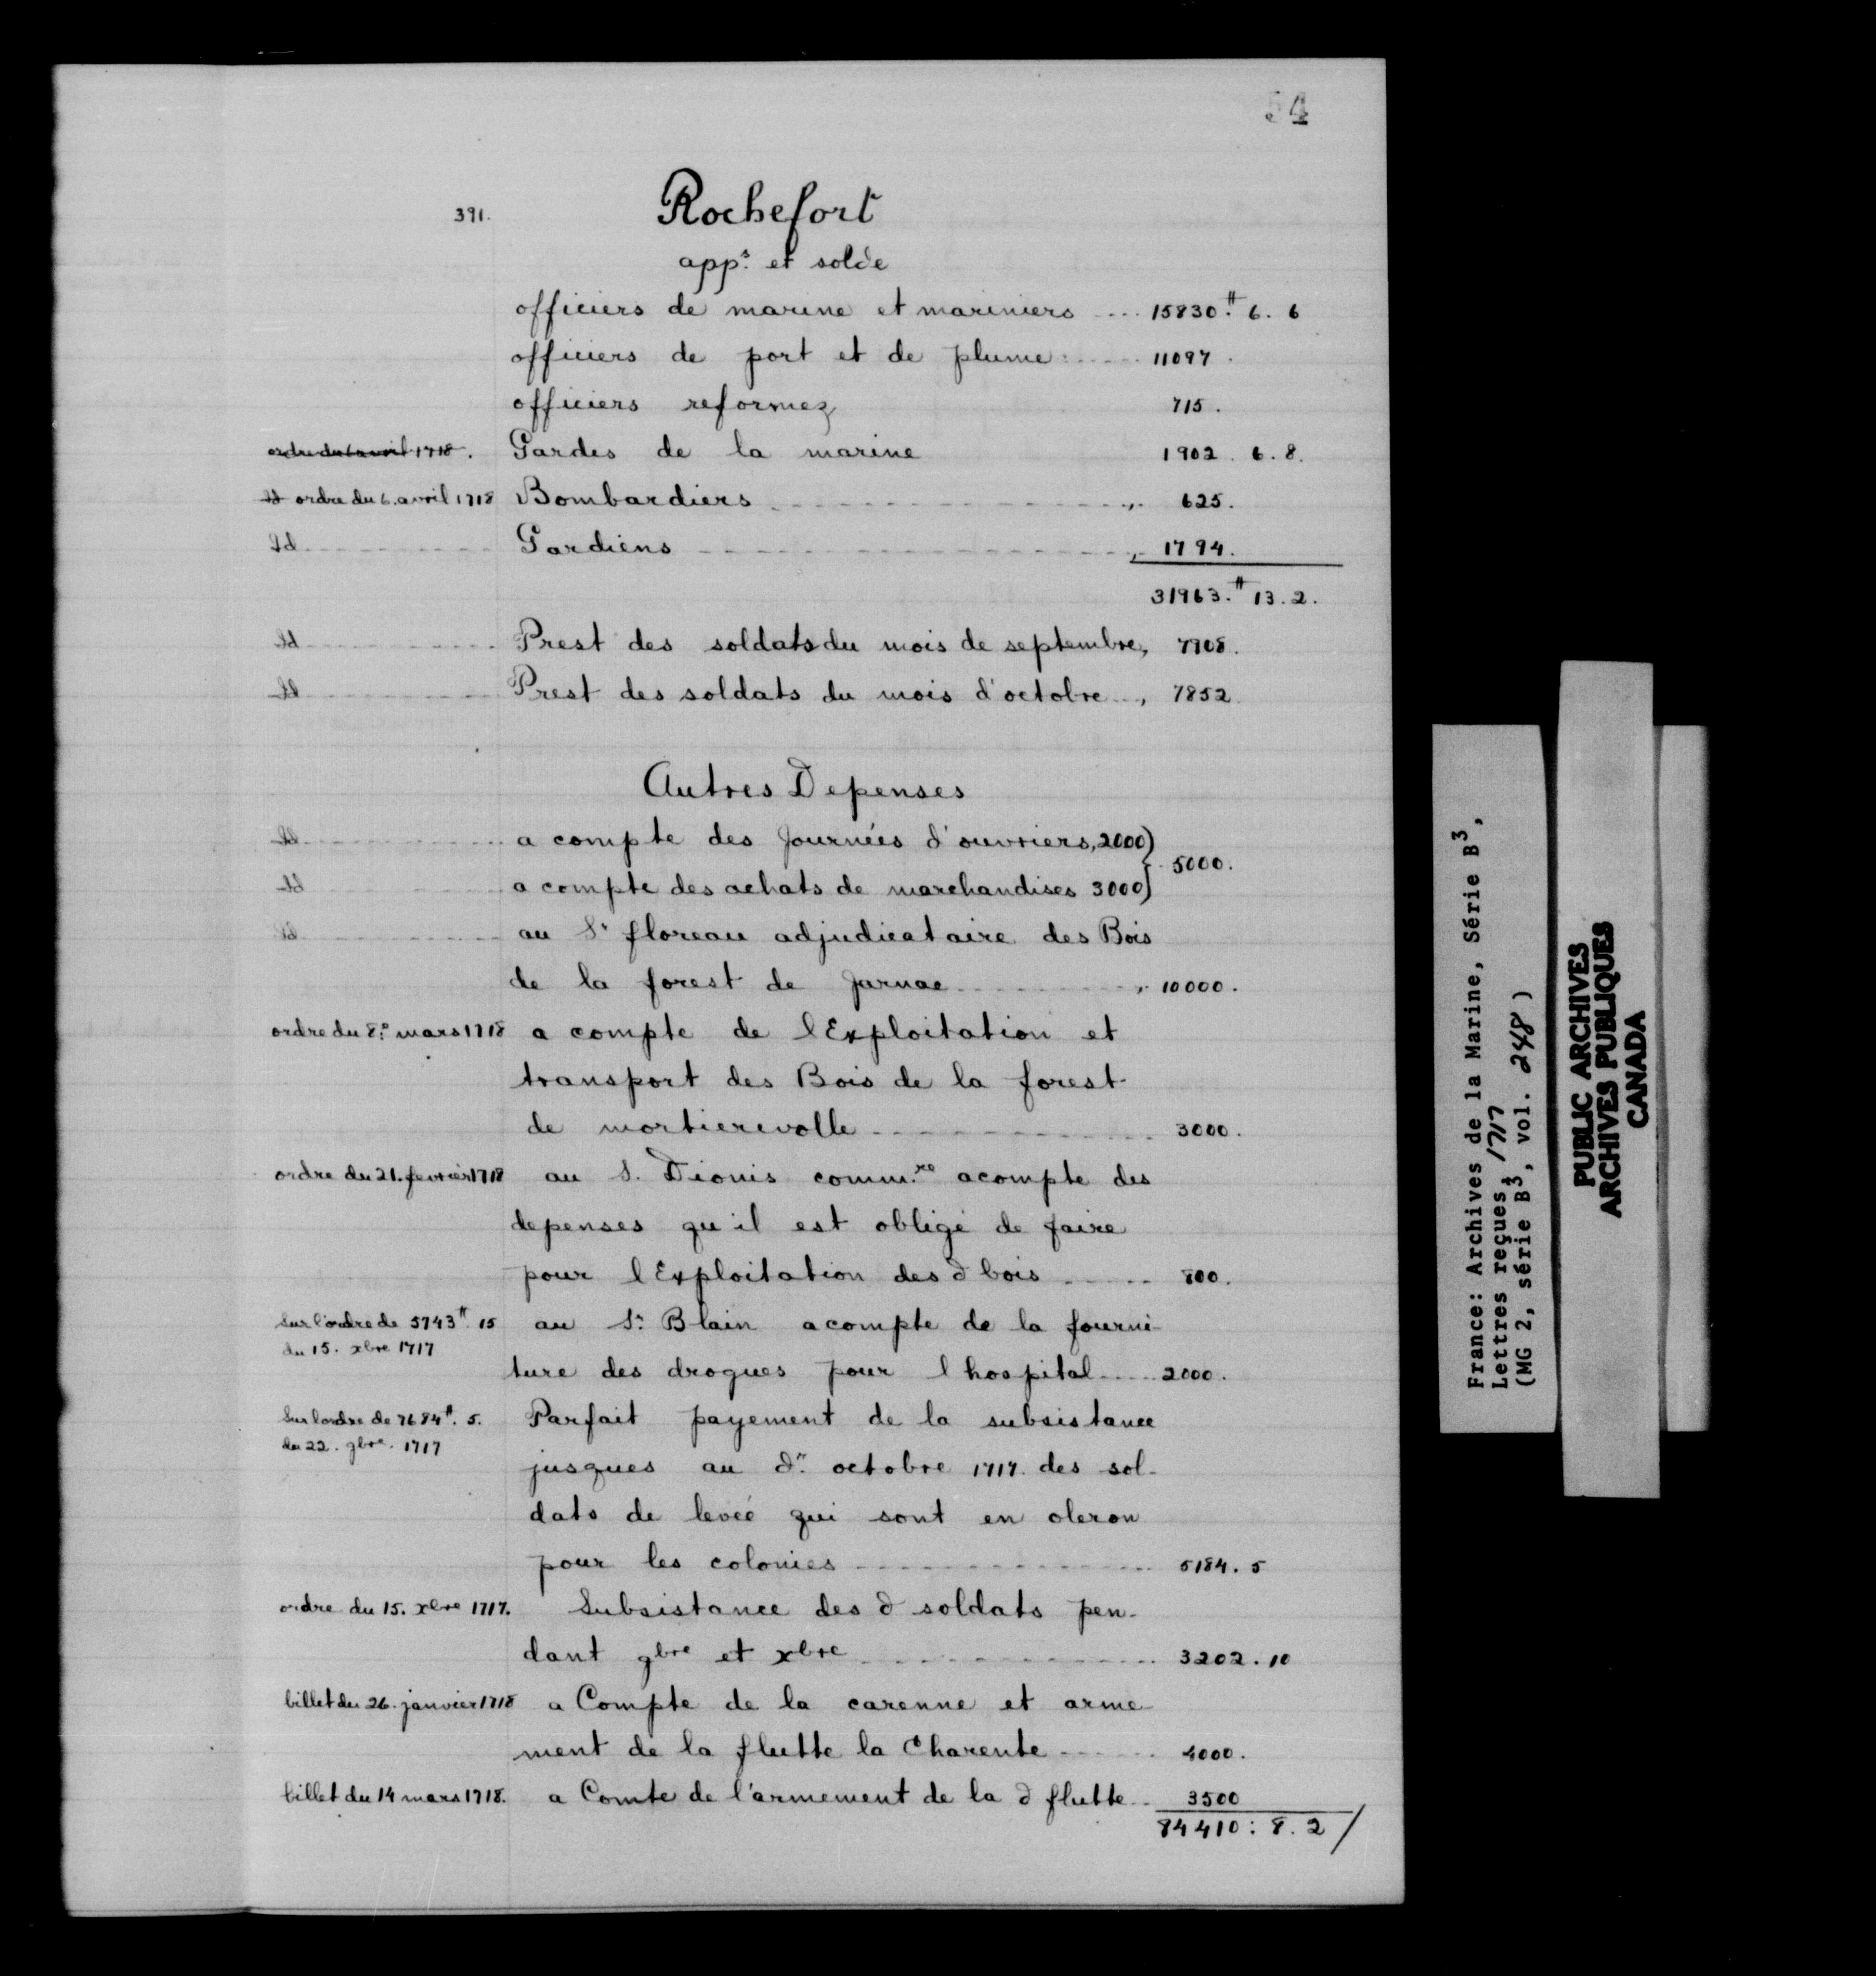 54
391. Rochefort
apps. et solde
officiers de marine et mariniers .... 15830.# 6. 6
officiers de port et de plume ...... 11097.
officiers reformez 715.
ordre du 6 avril 1718. Gardes de la marine 1902. 6. 8.
Id ordre du 6. avril 1718 Bombardiers ............ 625.
Id ............ Gardiens ............ 1794.
31963.# 13. 2.
Id ............ Prest des soldats du mois de septembre, 7908.
Id ............ Prest des soldats du mois d'octobre .., 7852.
Autres Depenses
Id ............ a compte des Journées d'ouvriers, 2000)
} 5000.
Id ............ a compte des achats de marchandises 3000)
Id ............ au Sr floreau adjudicataire des Bois
de la forest de Jarnac ............ 10000.
ordre du 8.e mars 1718 a compte de l Exploitation et
transport des Bois de la forest
de mortierevolle ............ 3000.
ordre du 21. fevrier 1718 au S. Dionis comm.re acompte des
depenses qu il est obligé de faire
pour l Exploitation des d bois ...... 800.
Sur l'ordre de 5743# 15 au Sr. Blain acompte de la fourni-
du 15. xbre 1717
ture des drogues pour l hospital .... 2000.
Sur l'ordre de 7684#. 5. Parfait payement de la subsistance
du 22. 9bre. 1717
jusques au dr. octobre 1717. des sol-
dats de leveé qui sont en oleron
pour les colonies ............ 5184. 5
ordre du 15. xbre 1717. Subsistance des d soldats pen-
dant 9bre et xbre ............ 3202. 10
billet du 26. janvier 1718 a Compte de la carenne et arme
ment de la flutte la Charente ...... 4000.
billet du 14 mars 1718. a Comte de l'armement de la d flutte .. 3500
84410: 8. 2/
France: Archives de la Marine, Série B3,
Lettres reçues, 1717
(MG 2, série B3, vol. 248)
PUBLIC ARCHIVES
ARCHIVES PUBLIQUES
CANADA